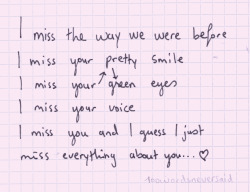 I miss the way we were before
I miss your pretty smile
I miss your green eyes
I miss your voice
I miss you and I guess I just
miss everything about you...♡